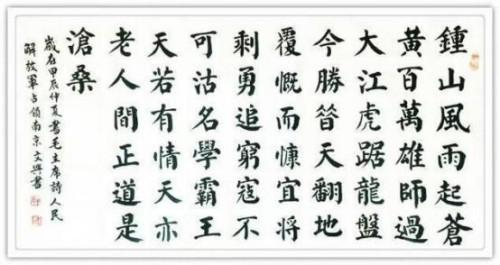 鍾山風雨起蒼
黃百萬雄師過
大江虎踞龍盤
今勝昔天翻地
覆慨而慷宜將
剩勇追窮寇不
可沽名學霸王
天若有情天亦
老人間正道是
滄桑
歲在甲辰仲夏書毛主席詩人民
解放軍占領南京文興書